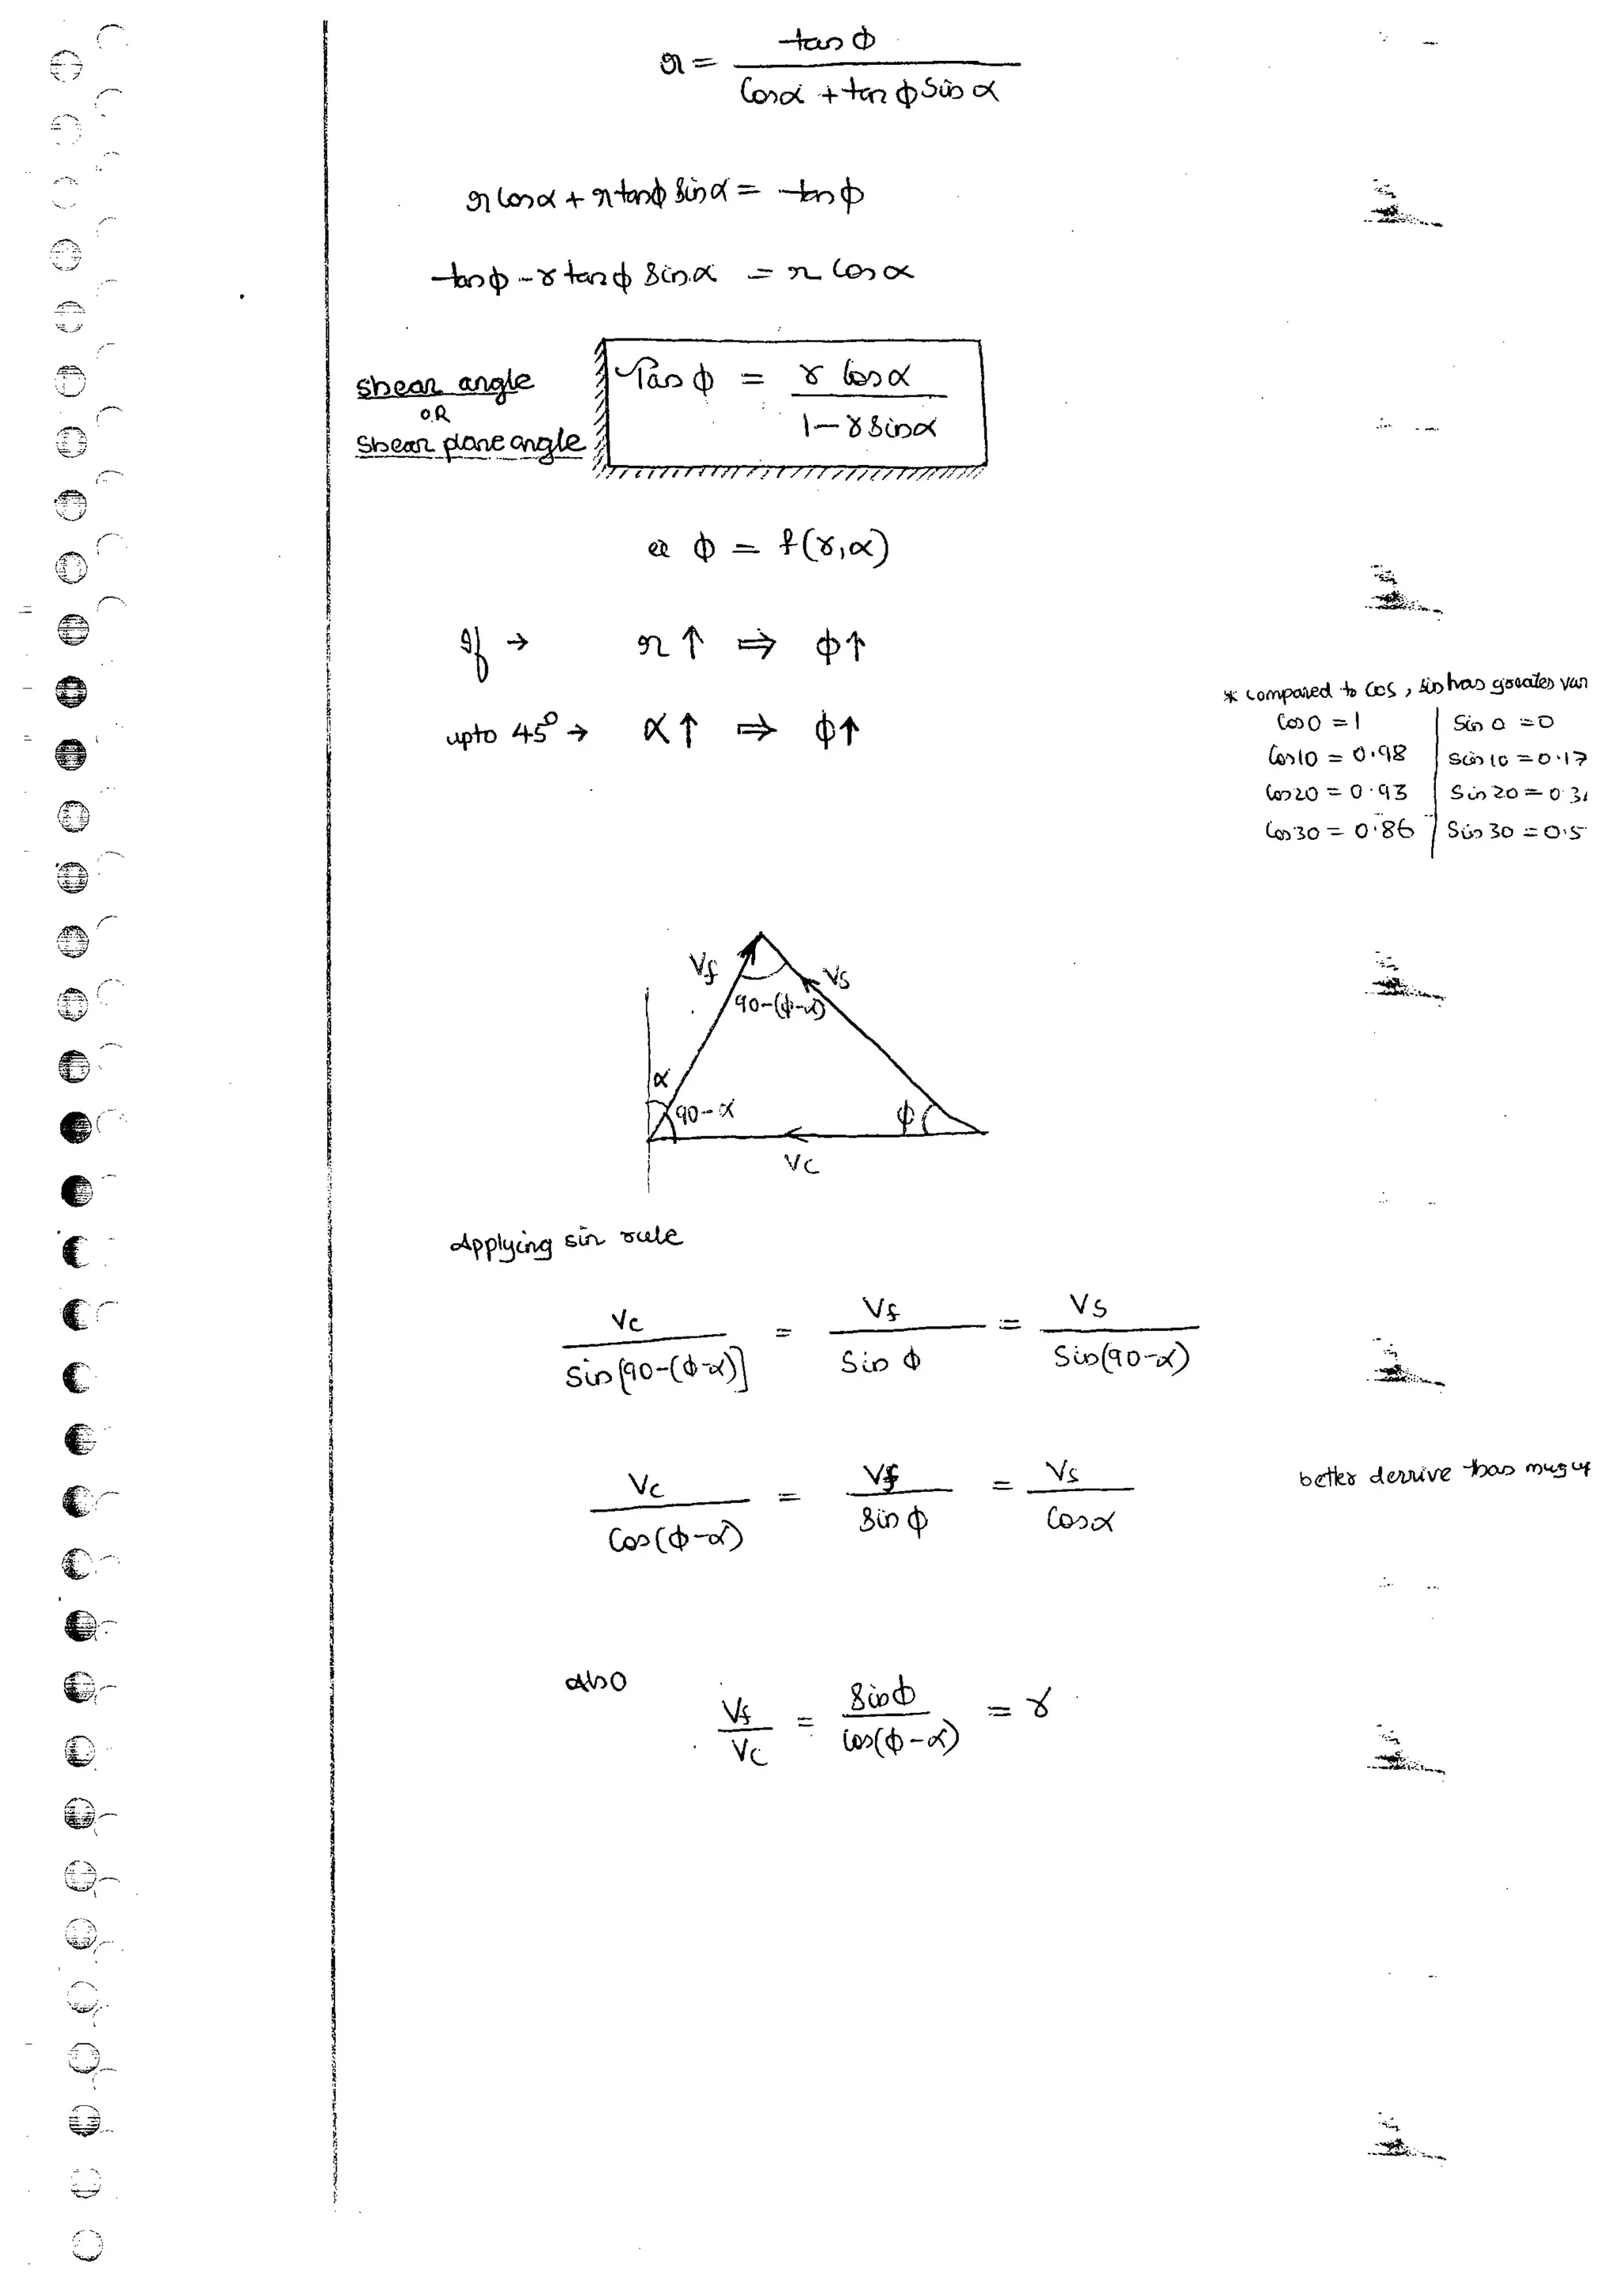 r = tan ϕ / (Cosα + tan ϕ Sin α)
r Cosα + r tanϕ Sinα = tan ϕ
tanϕ - r tan ϕ Sin α = r Cos α
Shear angle
OR
Shear plane angle
Tan ϕ = r Cosα / (1 - r Sinα)
ie ϕ = f(r, α)
If → r ↑ ⇒ ϕ↑
upto 45° → α ↑ ⇒ ϕ↑
* Compared to Cos, Sin has greater
Cos 0 = 1 | Sin 0 = 0
Cos10 = 0.98 | Sin 10 = 0.17
Cos20 = 0.93 | Sin 20 = 0.3
Cos30 = 0.86 | Sin 30 = 0.5
Vf
Vs
90-(ϕ-α)
α
90-α
ϕ
Vc
Applying sin rule
Vc / Sin[90-(ϕ-α)] = Vf / Sin ϕ = Vs / Sin(90-α)
Vc / Cos(ϕ-α) = Vf / Sin ϕ = Vs / Cosα
better derrive than mug up
Also
Vf / Vc = Sinϕ / Cos(ϕ-α) = r